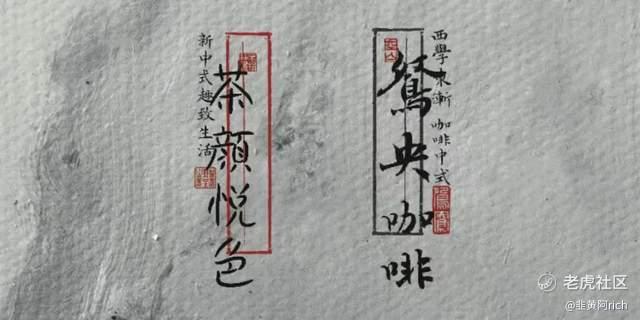 西學東漸 咖啡中式
鴛央咖啡
茶顏悦色
新中式趣致生活
老虎社区
@韭黄阿rich